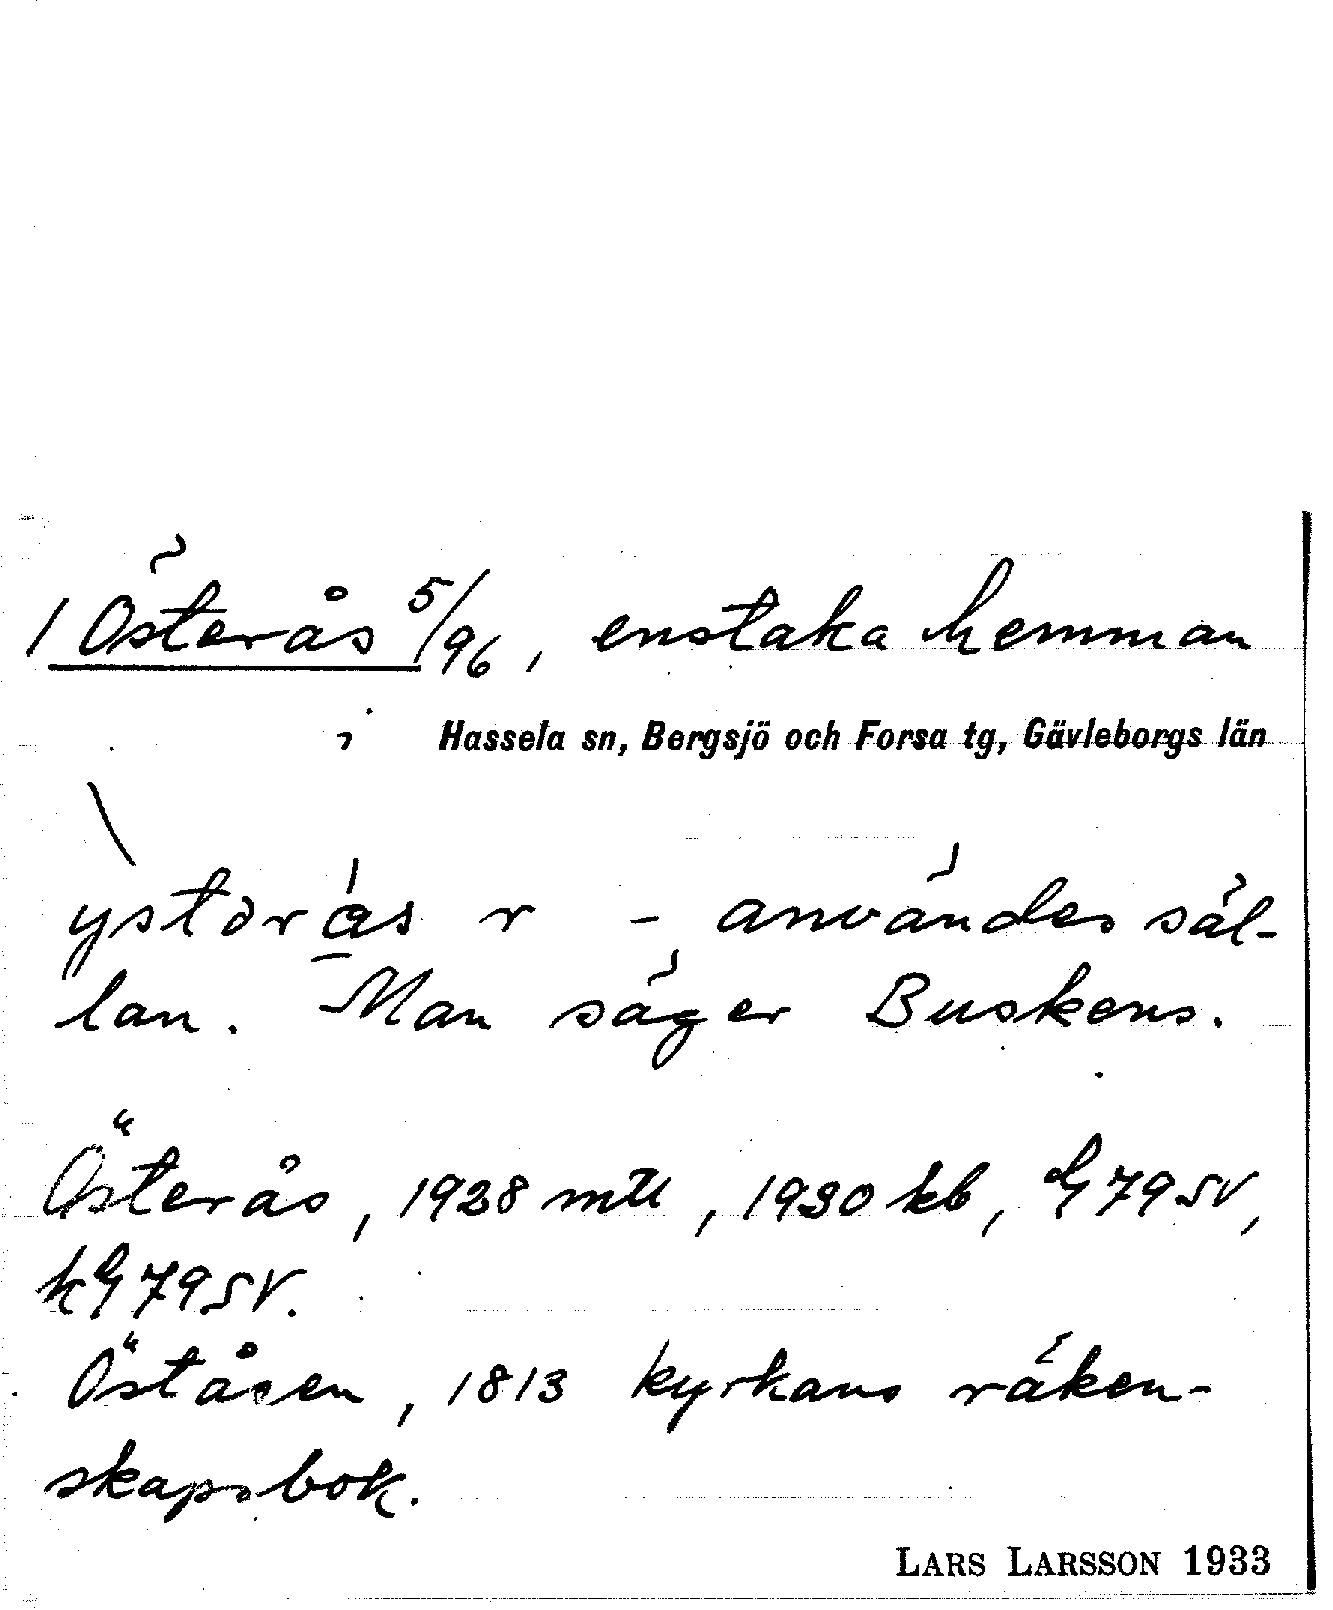 1 Österås 5/96, enstaka hemman
i Hassela sn, Bergsjö och Forsa tg, Gävleborgs län
ystərås r - användes säl-
lan. Man säger Buskens.
Österås, 1928 mtl, 1930 kb, G 79 SV,
kG 79 SV.
Öståsen, 1813 kyrkans räken-
skapsbok.
LARS LARSSON 1933